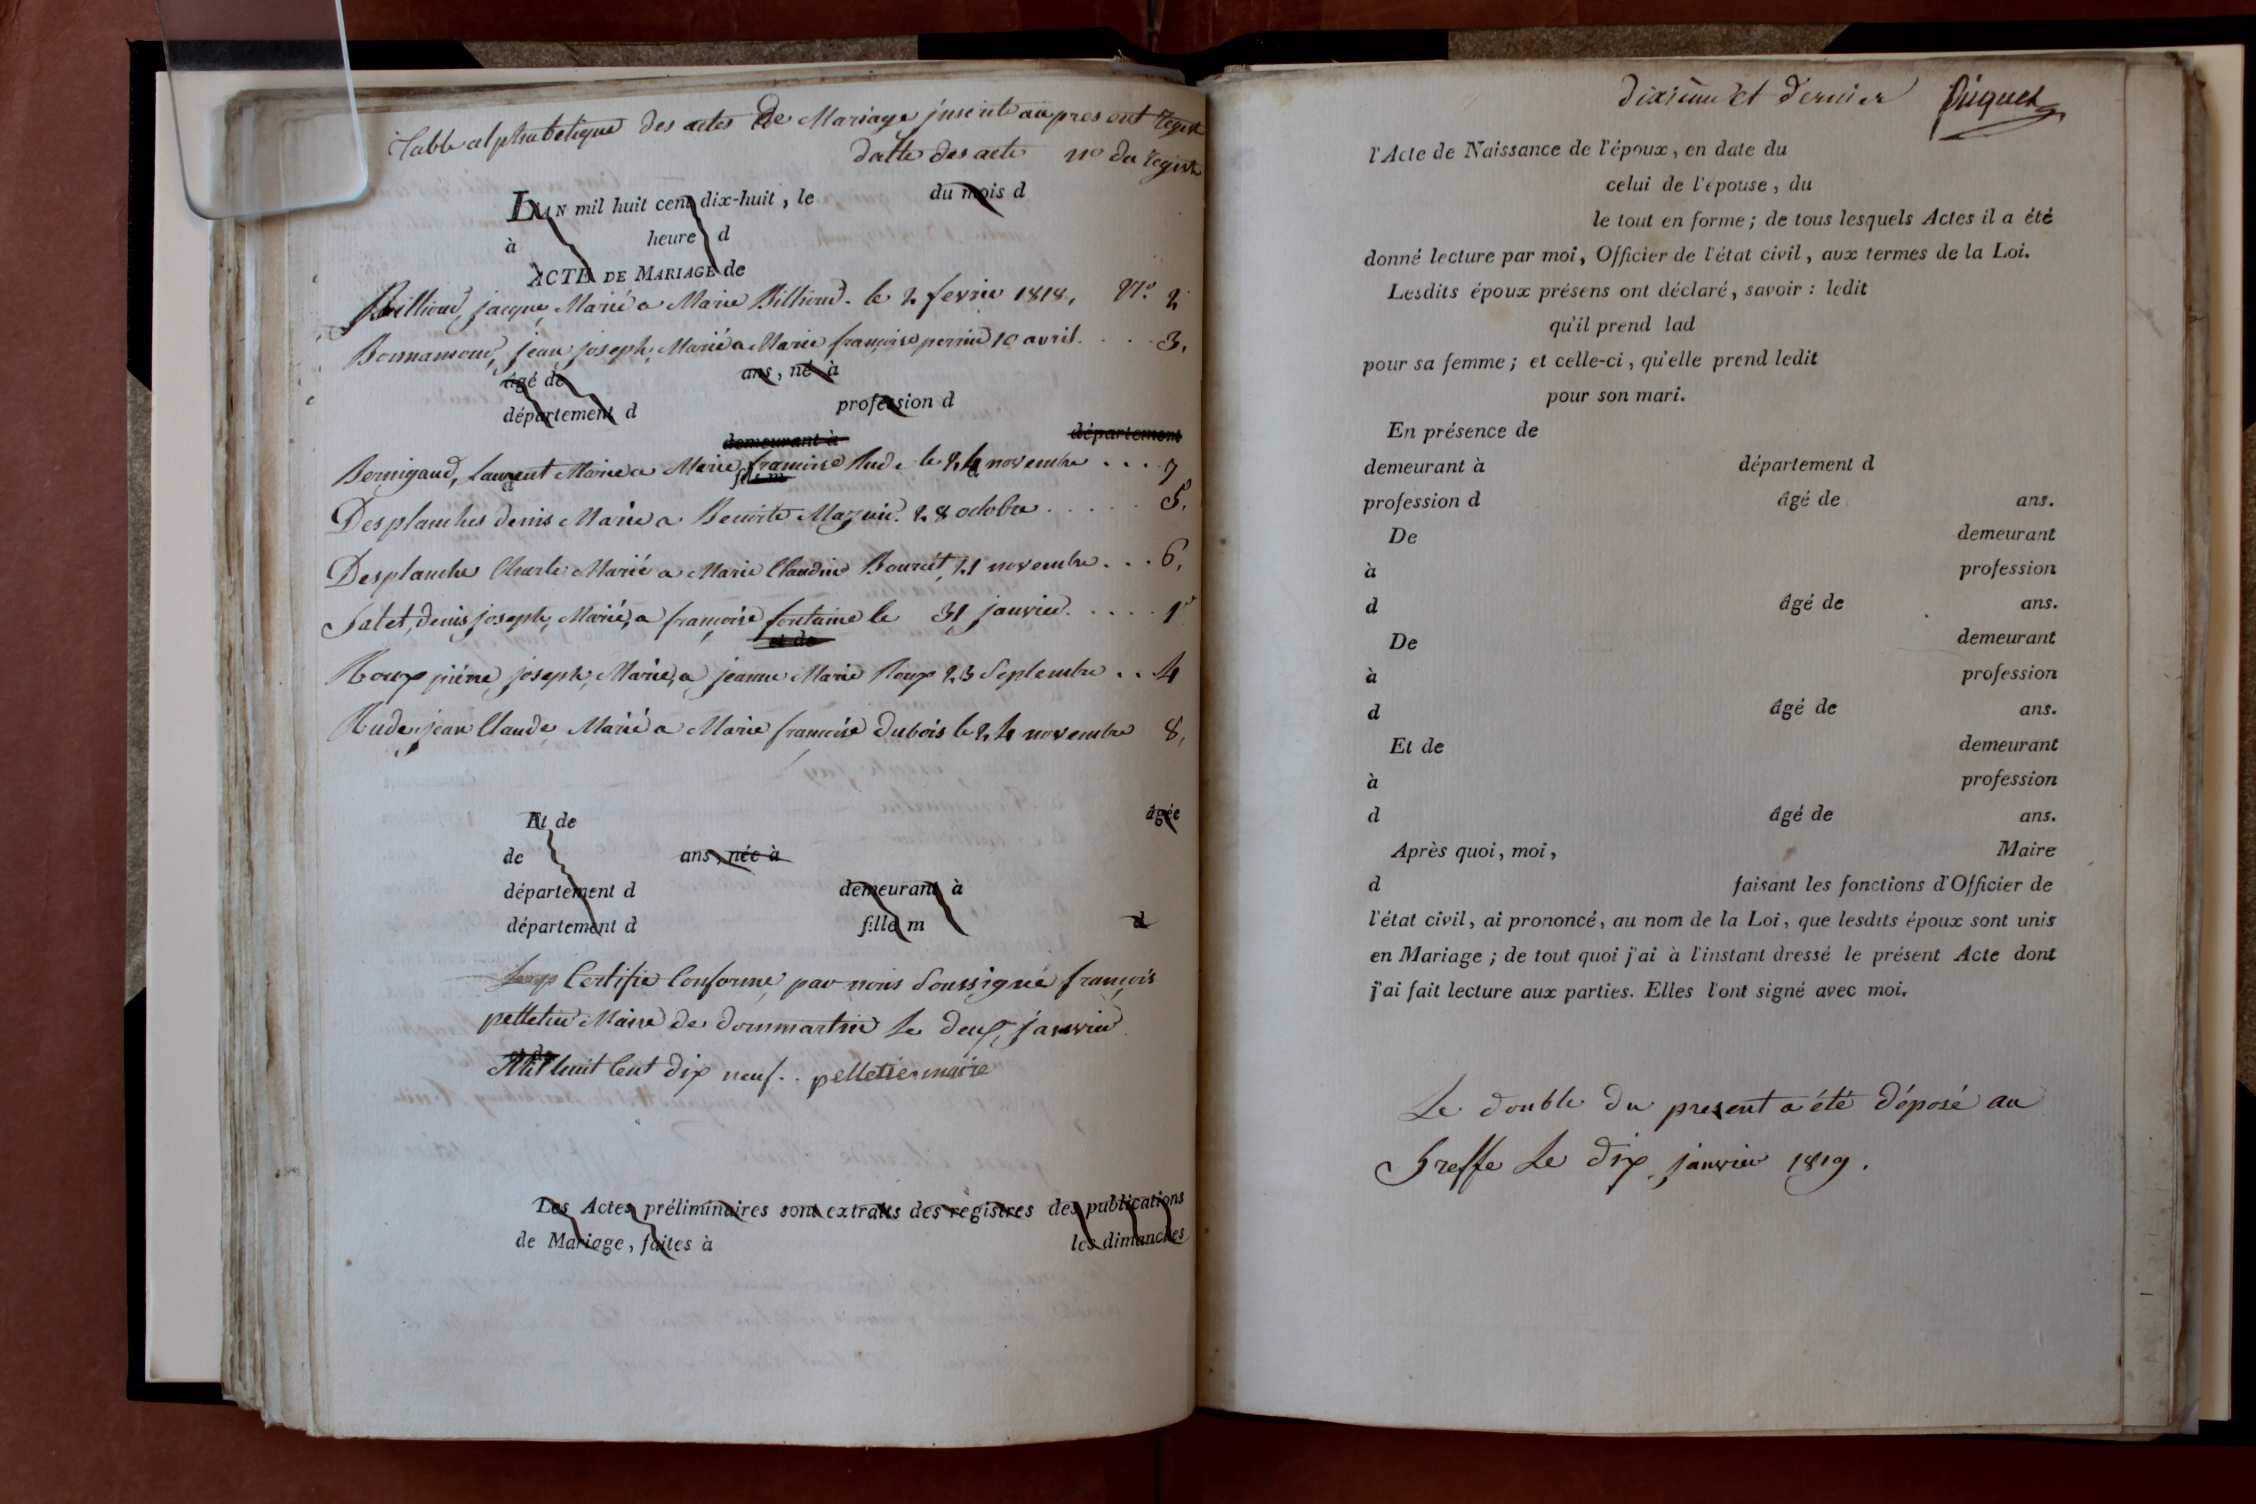 Table alphabetique des actes de Mariage inscrits au present Regist
datte des acte nº du Regist
L'AN mil huit cent dix-huit, le du mois d
à heure d
ACTE DE MARIAGE de
Billioud, jacque, Marié a Marie Billioud. le 2 fevrie 1818, Nº 2
Bonnamour, jean joseph, Marié a Marie françoise perrin 10 avril. . . . 3,
âgé de ans, né à
département d profession d
demeurant à département
Bernigaud, laurent Marie a Marie francoise Rude le 24 novembre . . . 7
fils m
Desplanches denis Marie a Benoite Mazuir. 28 octobre . . . . . 5,
Desplanche Charle Marié a Marie Claudine Bourcet, 21 novembre . . . 6,
Jalet, denis joseph, Marié, a françoise fontaine le 31 janvier. . . . . 1
et de
Roux pierre, joseph, Marie, a jeanne Marie Roux 23 Septembre . . 4
Rude, jean Claude Marié a Marie françoise Dubois le 24 novembre 8,
Et de âgée
de ans, née à
département d demeurant à
département d fille m d
Certifie Conforme par nous Soussigné françois
pelletier Maire de dommartin Le deux janvier
Mil huit Cent dix neuf. . pelletier maire
Les Actes préliminaires sont extraits des registres des publications
de Mariage, faites à les dimanches
dixième et dernier
l'Acte de Naissance de l'époux, en date du
celui de l'épouse, du
le tout en forme; de tous lesquels Actes il a été
donné lecture par moi, Officier de l'état civil, aux termes de la Loi.
Lesdits époux présens ont déclaré, savoir : ledit
qu'il prend lad
pour sa femme; et celle-ci, qu'elle prend ledit
pour son mari.
En présence de
demeurant à département d
profession d âgé de ans.
De demeurant
à profession
d âgé de ans.
De demeurant
à profession
d âgé de ans.
Et de demeurant
à profession
d âgé de ans.
Après quoi, moi, Maire
d faisant les fonctions d'Officier de
l'état civil, ai prononcé, au nom de la Loi, que lesdits époux sont unis
en Mariage; de tout quoi j'ai à l'instant dressé le présent Acte dont
j'ai fait lecture aux parties. Elles l'ont signé avec moi.
Le double du present a été déposé au
Greffe Le dix janvier 1819.